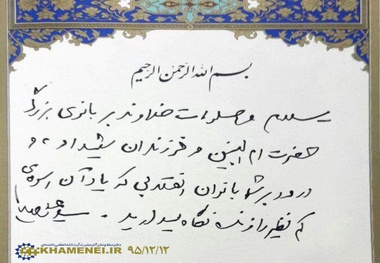 بسم الله الرحمن الرحیم
سلام و صلوات خداوند بر بانوی بزرگ
حضرت ام البنین و فرزندان شهید او و
درود بر شما بانوان انقلابی که یاد آن اسوه‌ی
کم نظیر را زنده نگاه میدارید.
KHAMENEI.IR ۹۵/۱۲/۱۲